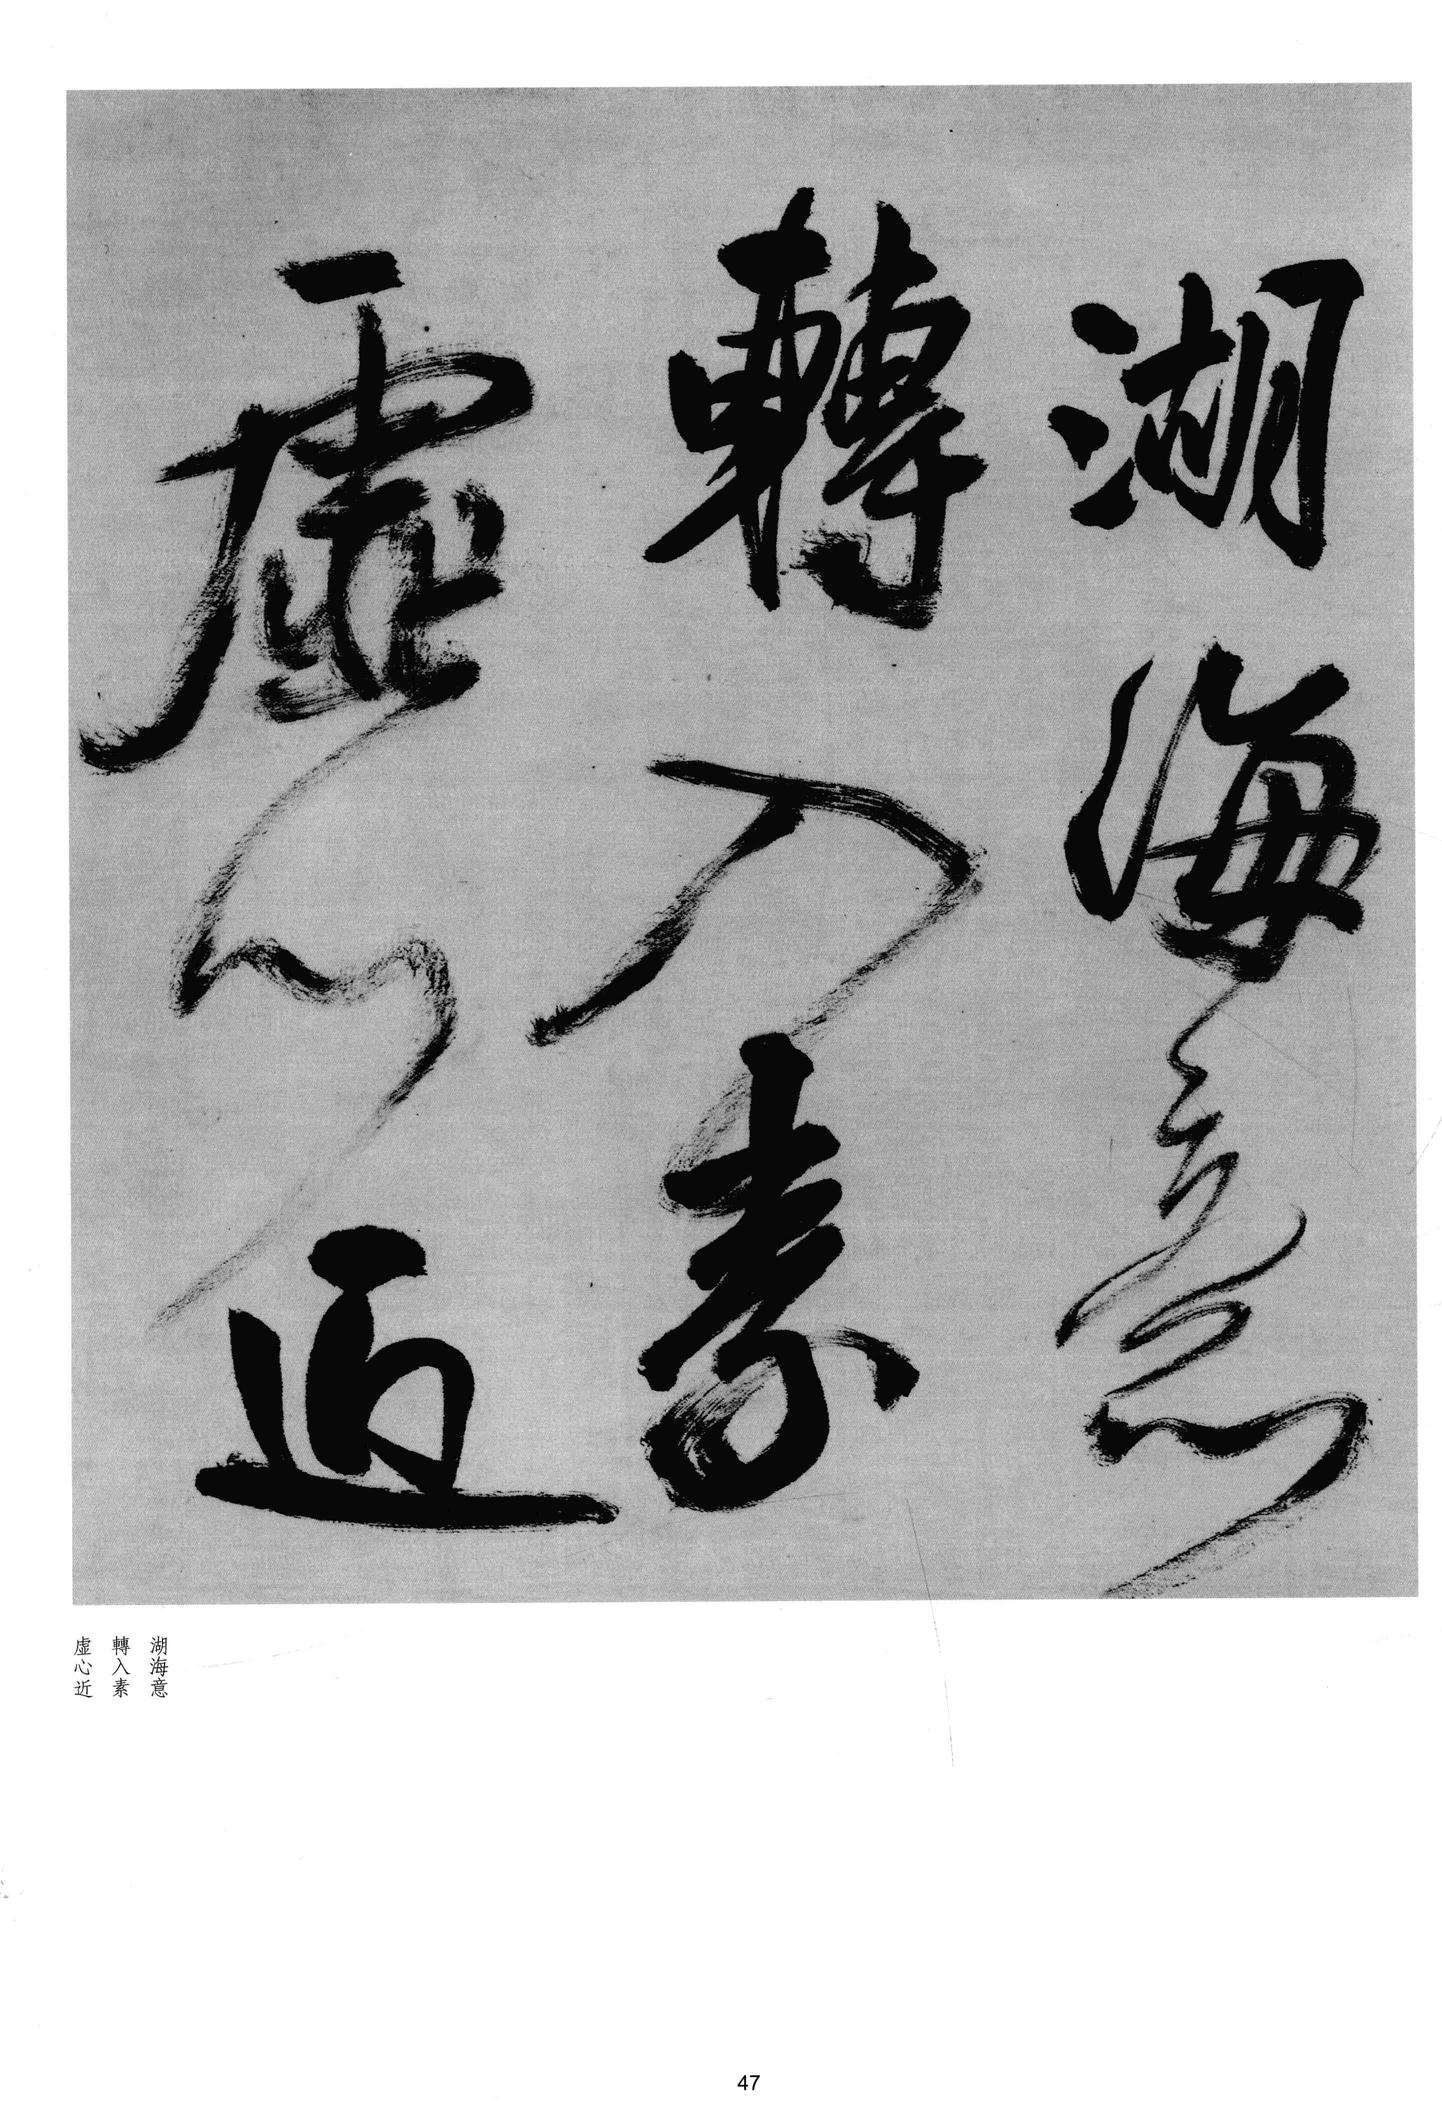 湖海意
轉入素
虛心近
湖海意
轉入素
虛心近
47